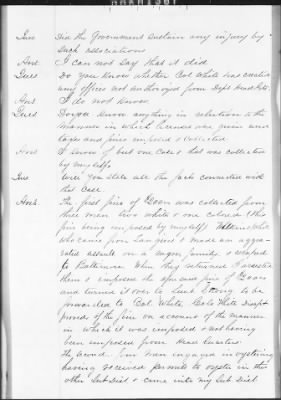 Ques Did the Government sustain any injury by
such associations
Ans I can not say that it did
Ques Do you know whether Col White has created
any offices not authorized from Dept Head Qrs.
Ans I do not know.
Ques Do you know anything in relation to the
manner in which licenses were given and
taxes and fines imposed & collected
Ans I know of but one case & that was collected
by myself.
Ques Will you state all the facts connected with
this Case.
Ans The first fine of was collected from
three men two white and one colored (this
fine being imposed by myself)
who came from & made an aggra-
vated assault on a negro family, & escaped
to Baltimore When they returned I arrested
them & imposed the above said fine of
and turned it over to Lieut to be
forwarded to Col White. Col White disap-
proved of the fine on account of the manner
in which it was imposed & not having
been imposed from Head Quarters.
The second four men engaged in oystering
having received permits to oyster in this
other Sub Dist & came into my Sub Dist